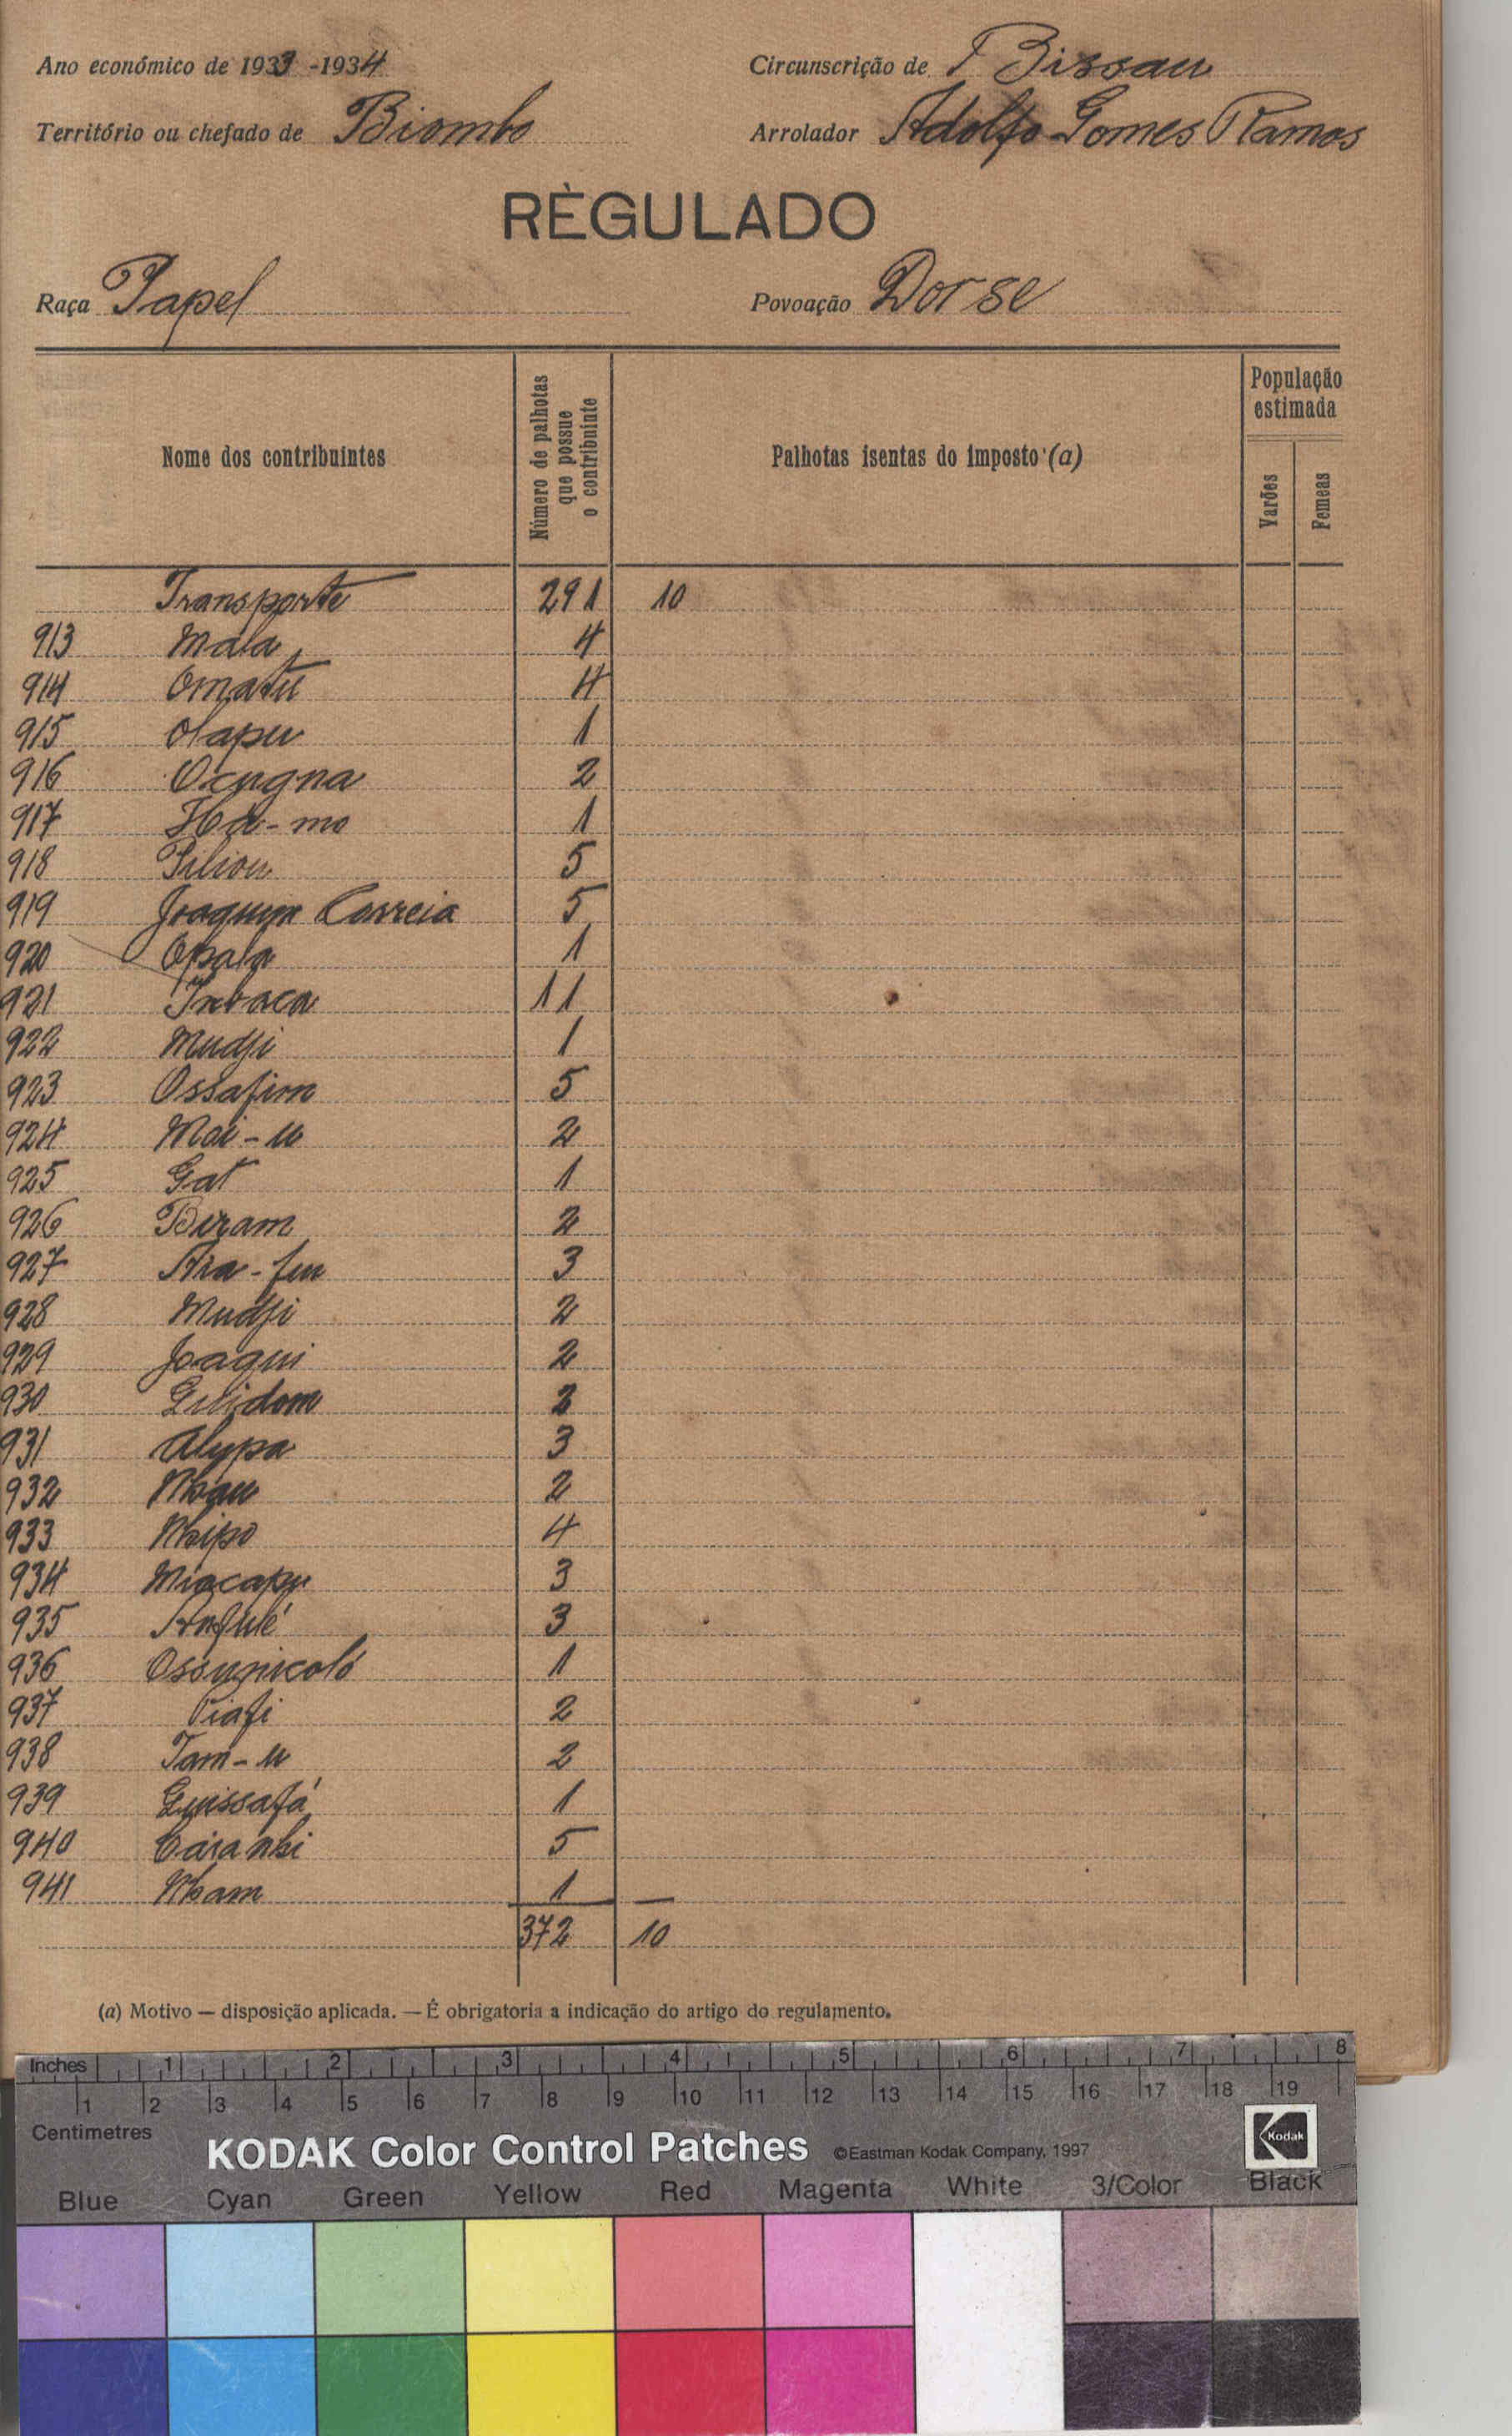 Ano económico de 1933-1934
Circunscrição de Bissau
Território ou chefado de Biombo
Arrolador Adolfo Gomes Ramos
RÈGULADO
Raça Papel
Povoação Dorse
Nome dos contribuintes
Número de palhotas que possue o contribuinte
Palhotas isentas do imposto (a)
População estimada
Varões
Femeas
Transporte 291 10
913 Mala 4
914 Omatu 4
915 Olapu 1
916 Ocugna 2
917 1
918 5
919 Joaquim Correia 5
920 Opala 1
921 11
922 Mudji 1
923 Ossafim 5
924 Mai-u 2
925 Gat 1
926 Biram 2
927 3
928 Mudji 2
929 Joaqui 2
930 2
931 Alypa 3
932 Nhau 2
933 Nhipo 4
934 3
935 3
936 1
937 Piafi 2
938 Tam-u 2
939 Guissafá 1
940 5
941 Nham 1
372 10
(a) Motivo — disposição aplicada. — É obrigatoria a indicação do artigo do regulamento.
Inches 1 2 3 4 5 6 7 8
1 2 3 4 5 6 7 8 9 10 11 12 13 14 15 16 17 18 19
Centimetres
KODAK Color Control Patches ©Eastman Kodak Company, 1997 Kodak
Blue Cyan Green Yellow Red Magenta White 3/Color Black